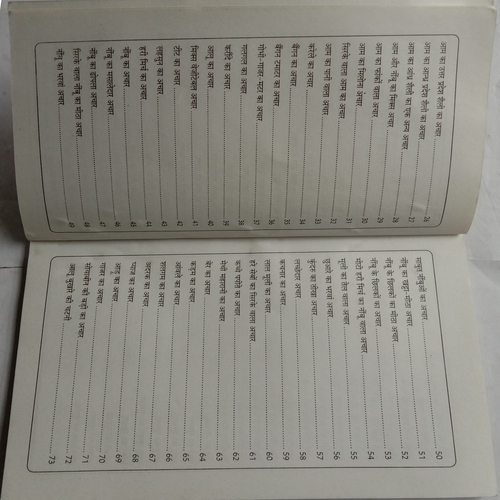 आम का उत्तर प्रदेश शैली का अचार 26
आम का आन्ध्र प्रदेश शैली का अचार 27
आम का आंध्र शैली का एक अन्य अचार 27
आम और नींबू का मिक्स अचार 28
आम का फांकों वाला अचार 29
आम का मिलौनी अचार 30
सिरके वाला आम का अचार 31
आम का पानी वाला अचार 32
करेले का अचार 33
बैंगन का अचार 34
बैंगन टमाटर का अचार 35
गोभी-गाजर-मटर का अचार 37
गलगल का अचार 38
करौंदे का अचार 39
आलू का अचार 40
मिक्स वेजीटेबल अचार 41
टींट का अचार 42
लहसुन का अचार 43
हरी मिर्च का अचार 44
नींबू का अचार 45
नींबू का मसालेदार अचार 46
नींबू का डोचला अचार 47
सिरके वाला नींबू का मीठा अचार 48
नींबू का भरवां अचार 49
साबुत नींबुओं का अचार 50
नींबू का खट्टा-मीठा अचार 51
नींबू के छिलकों का मीठा अचार 52
नींबू के छिलकों का अचार 53
मोटी हरी मिर्च का नींबू वाला अचार 54
मूली का तेल वाला अचार 55
छुआरे का भरवां अचार 56
कुंदरू का तीखा अचार 57
लसोड़ा अचार 58
कचनार का अचार 59
लाल मूली का अचार 60
हरे सेबों का सिरके वाला अचार 61
कच्चे पपीते का अचार 62
मेथी महारानी का अचार 63
बेर का अचार 64
कद्दम का अचार 65
आंवले का अचार 66
शलगम का अचार 67
अदरक का अचार 68
प्याज का अचार 69
आड़ू का अचार 70
गाजर का अचार 71
सोयाबीन की बड़ी का अचार 72
आलू बुखारे की चटनी 73